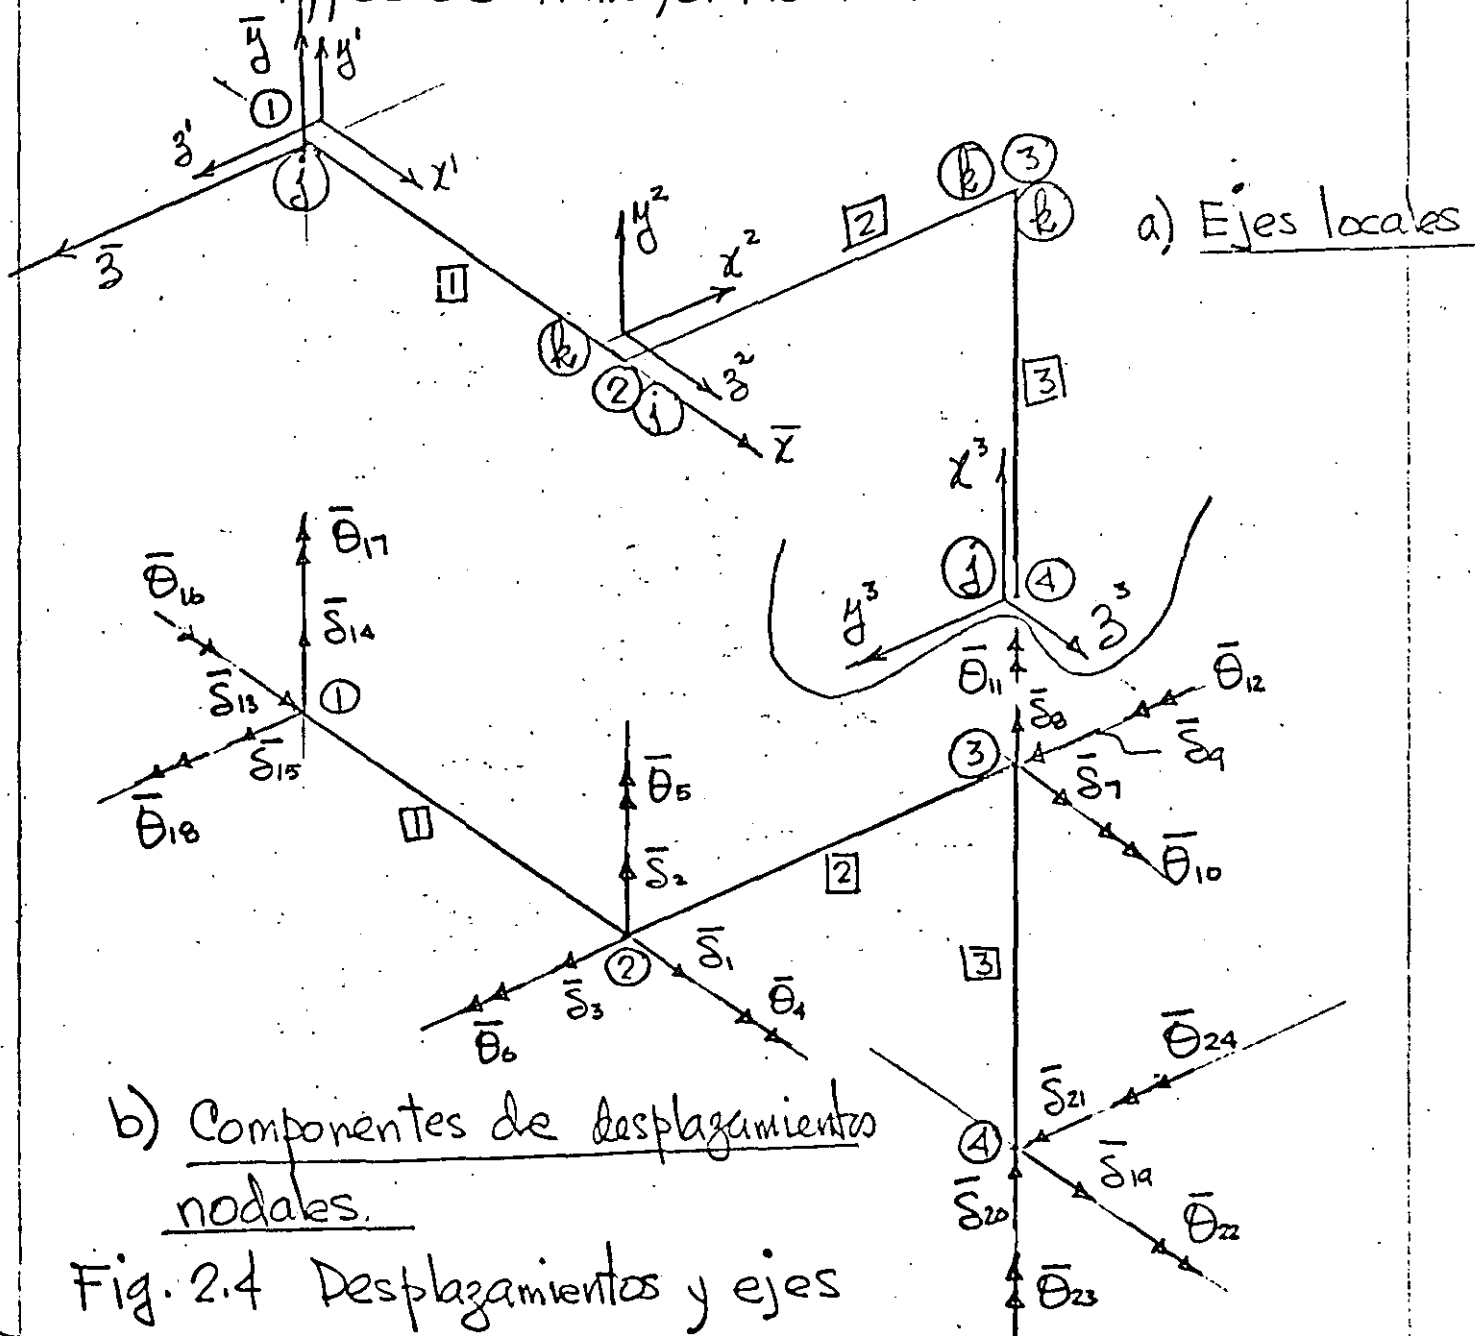 ȳ
y¹
①
z¹
x¹
j
z̄
1
y²
x²
2
k
③
k
a) Ejes locales
k
②
j
z²
x̄
3
x³
j
④
y³
z³
θ̄17
θ̄16
δ̄14
δ̄13
①
δ̄15
θ̄18
1
θ̄5
δ̄2
②
δ̄1
θ̄4
δ̄3
θ̄6
2
θ̄11
θ̄12
δ̄8
③
δ̄9
δ̄7
θ̄10
3
θ̄24
δ̄21
④
δ̄19
δ̄20
θ̄22
θ̄23
b) Componentes de desplazamientos
nodales.
Fig. 2.4 Desplazamientos y ejes